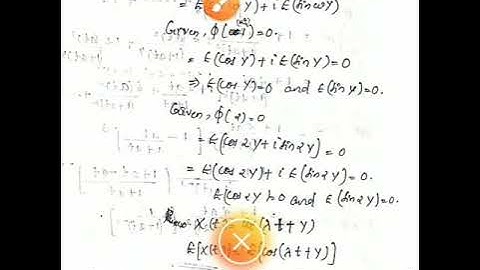 = E(cos ωY) + i E(sin ωY)
Given, ϕ(1) = 0.
= E(cos Y) + i E(sin Y) = 0
⇒ E(cos Y) = 0 and E(sin Y) = 0.
Given, ϕ(2) = 0
= E[cos 2Y + i sin 2Y] = 0
= E(cos 2Y) + i E(sin 2Y) = 0.
E(cos 2Y) = 0 and E(sin 2Y) = 0.
X(t) = (λt + Y)
E[X(t)] = E[cos(λt + Y)]